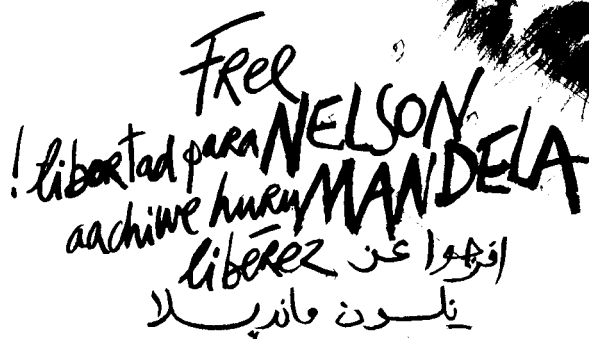 Free
! libertad para NELSON
aachiwe huru MANDELA
libérez افرجوا عن
نلسون مانديلا